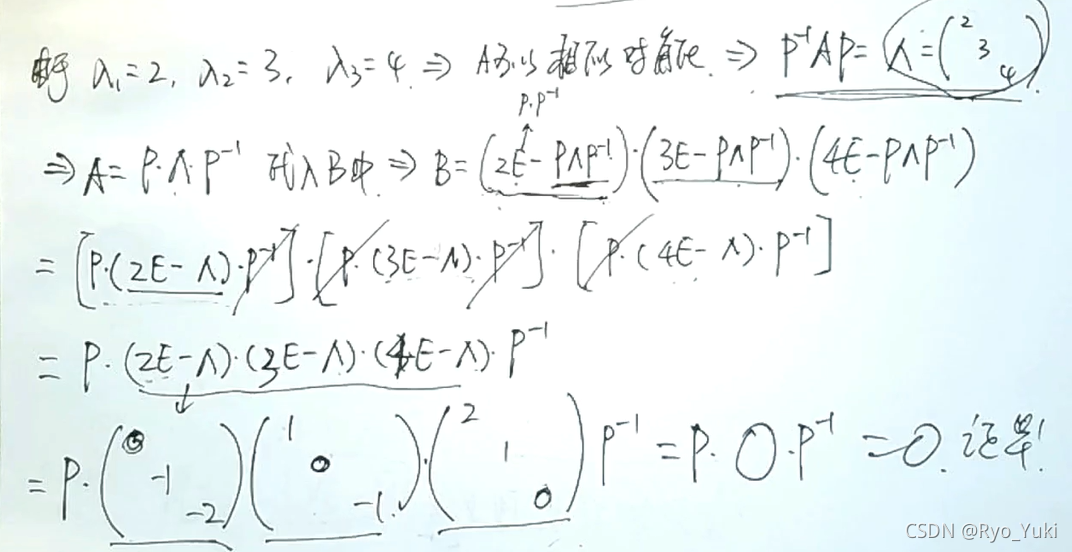 由于 λ₁=2, λ₂=3, λ₃=4 ⇒ A可以相似对角化 ⇒ P⁻¹AP=Λ=(2 3 4)
P·P⁻¹
⇒ A= P·Λ·P⁻¹ 代入B中 ⇒ B=(2E-PΛP⁻¹)·(3E-PΛP⁻¹)·(4E-PΛP⁻¹)
= [P·(2E-Λ)·P⁻¹]·[P·(3E-Λ)·P⁻¹]·[P·(4E-Λ)·P⁻¹]
= P·(2E-Λ)·(3E-Λ)·(4E-Λ)·P⁻¹
= P·(0 -1 -2)(1 0 -1)·(2 1 0)P⁻¹ = P·O·P⁻¹ =0. 证毕!
CSDN @Ryo_Yuki